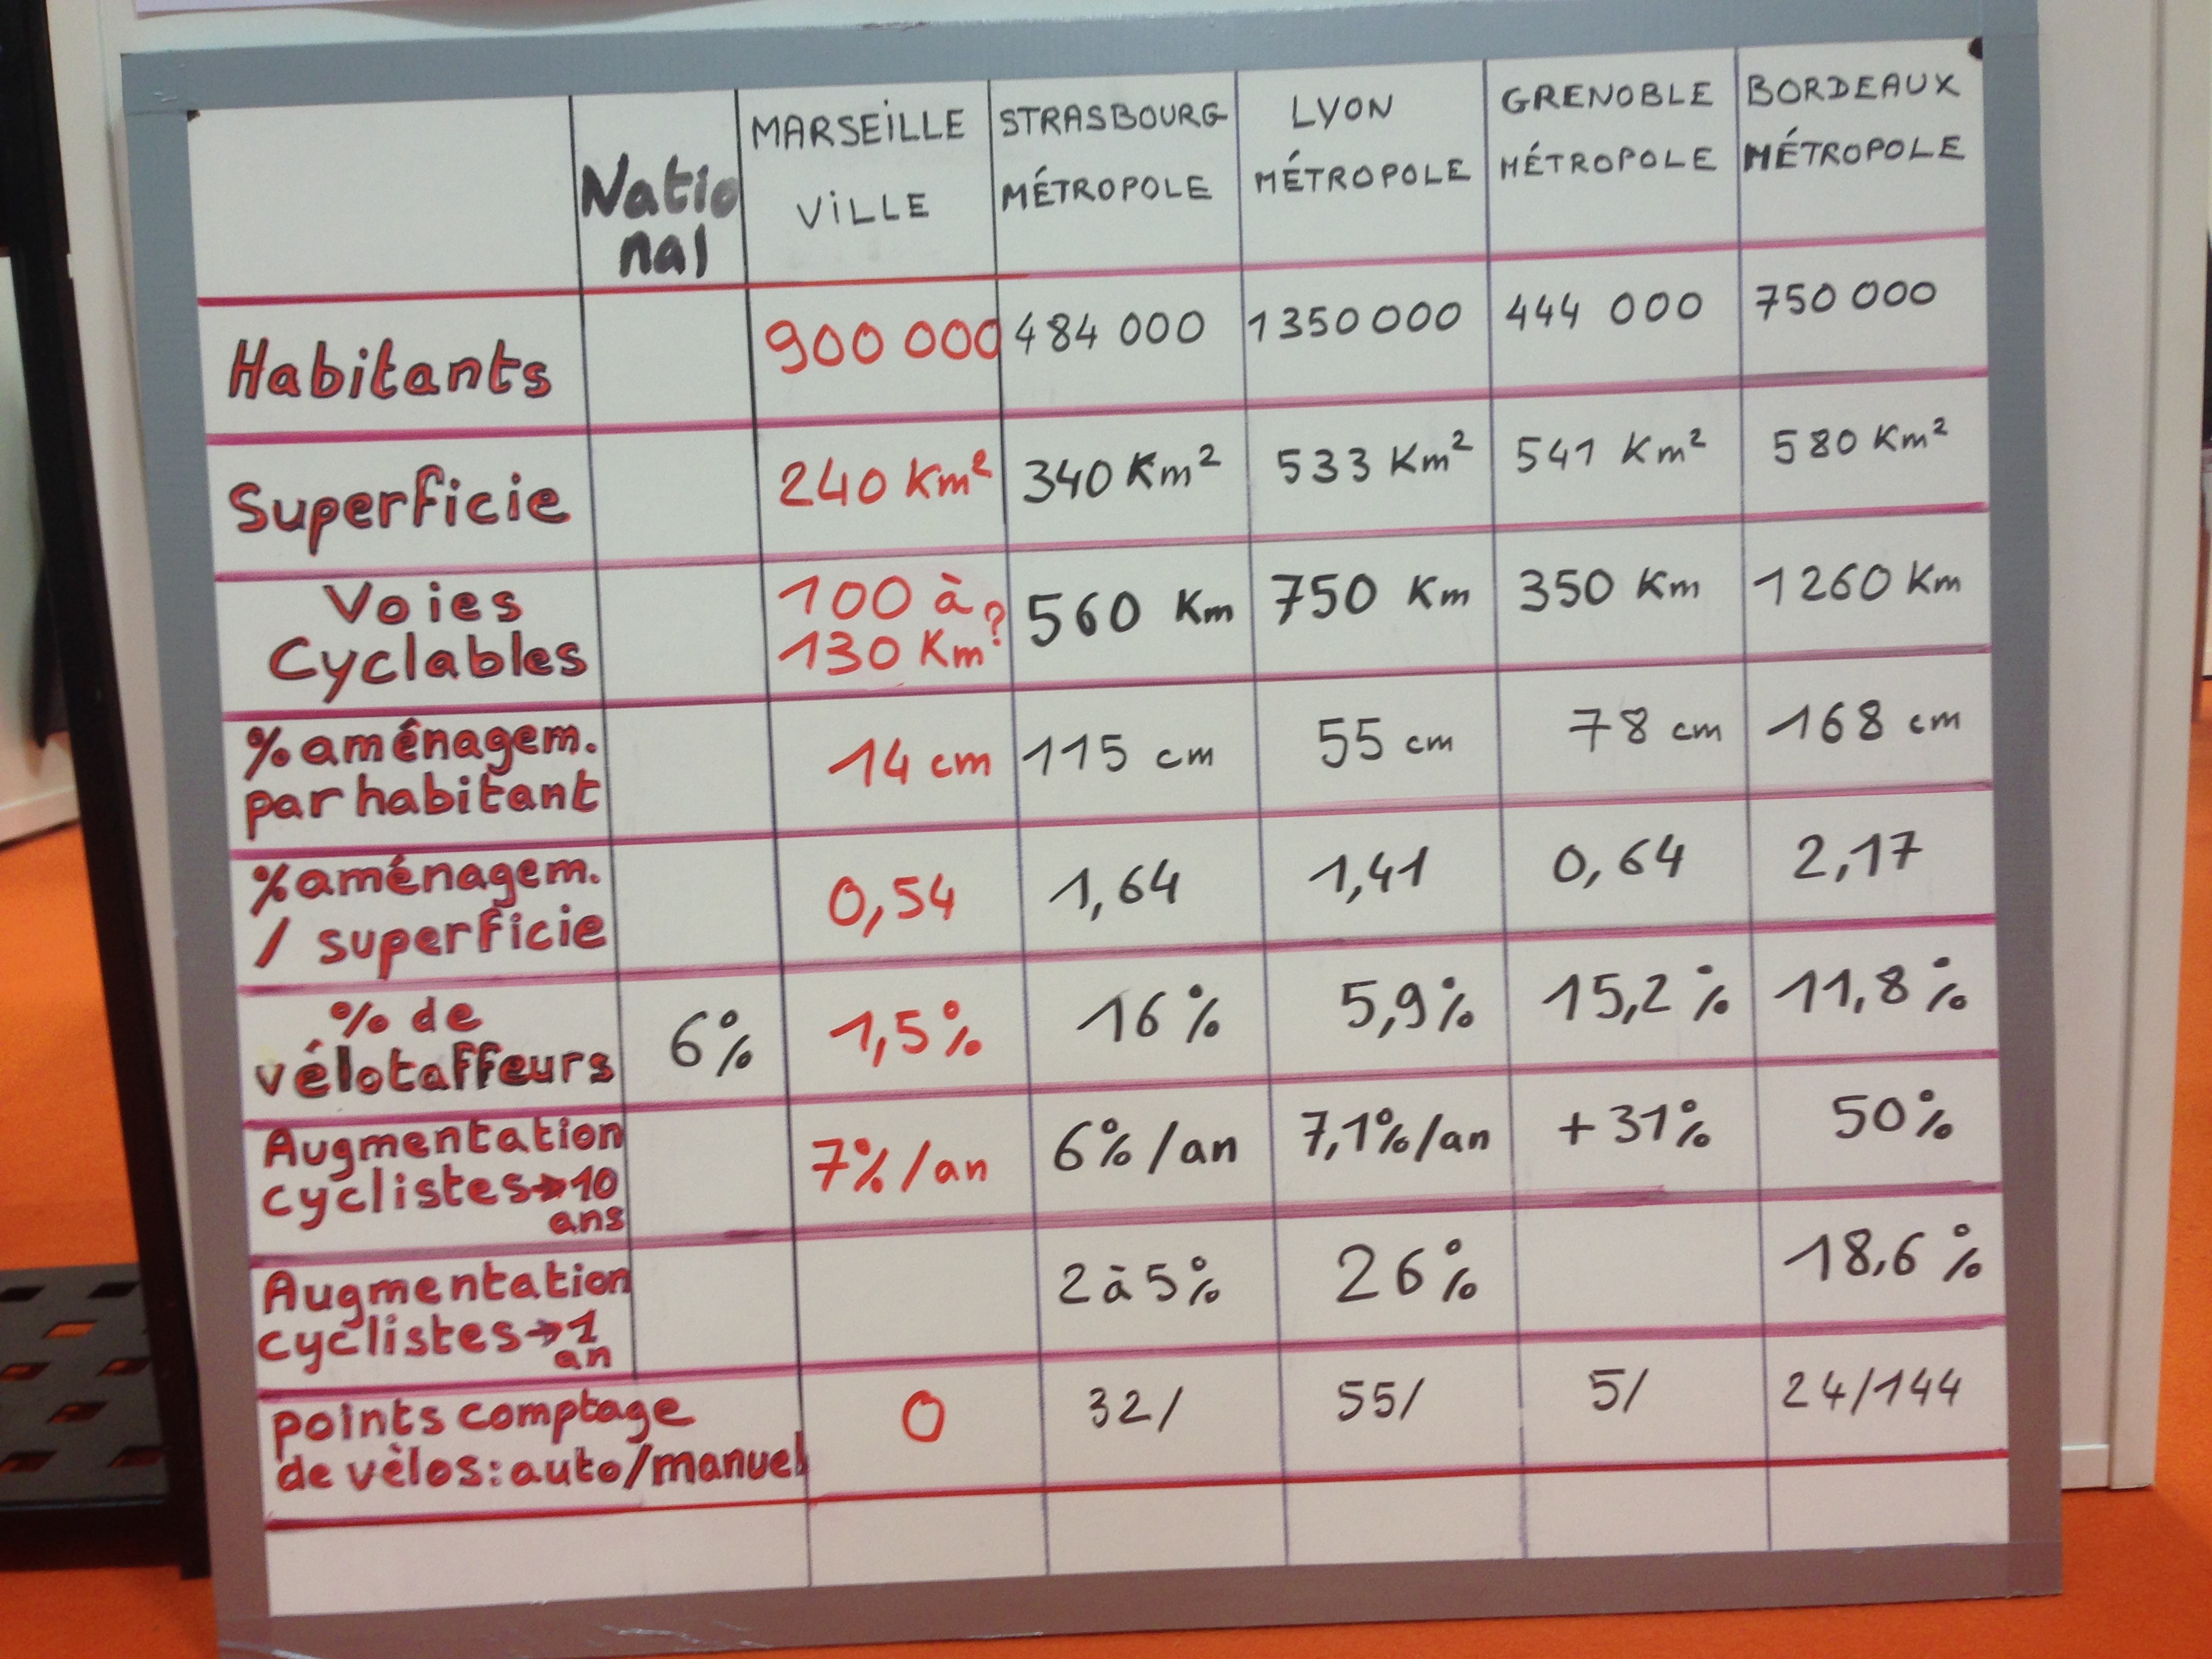 Natio
nal
MARSEILLE
VILLE
STRASBOURG
MÉTROPOLE
LYON
MÉTROPOLE
GRENOBLE
MÉTROPOLE
BORDEAUX
MÉTROPOLE
Habitants 900 000 484 000 1350000 444 000 750 000
Superficie 240 Km² 340 Km² 533 Km² 541 Km² 580 Km²
Voies
Cyclables
100 à
130 Km?
560 Km 750 Km 350 Km 1260 Km
% aménagem.
par habitant
14 cm 115 cm 55 cm 78 cm 168 cm
% aménagem.
/ superficie
0,54 1,64 1,41 0,64 2,17
% de
vélotaffeurs
6% 1,5% 16% 5,9% 15,2% 11,8%
Augmentation
cyclistes→10
ans
7%/an 6%/an 7,1%/an +31% 50%
Augmentation
cyclistes→1
an
2 à 5% 26% 18,6%
points comptage
de vèlos: auto/manuel
0 32/ 55/ 5/ 24/144